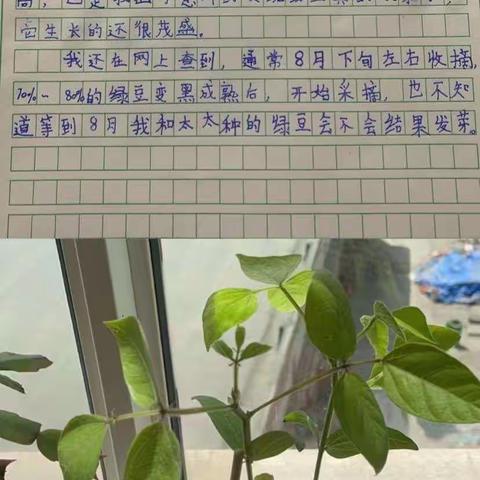 它生长的还很茂盛。
我还在网上查到，通常8月下旬左右收摘，
70%~80%的绿豆变黑成熟后，开始采摘，也不知
道等到8月我和太太种的绿豆会不会结果发芽。